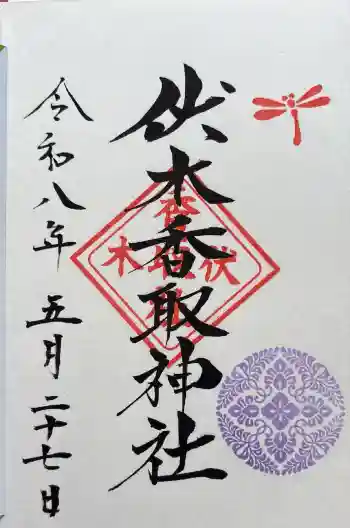 伏木香取神社
令和八年 五月 二十七日